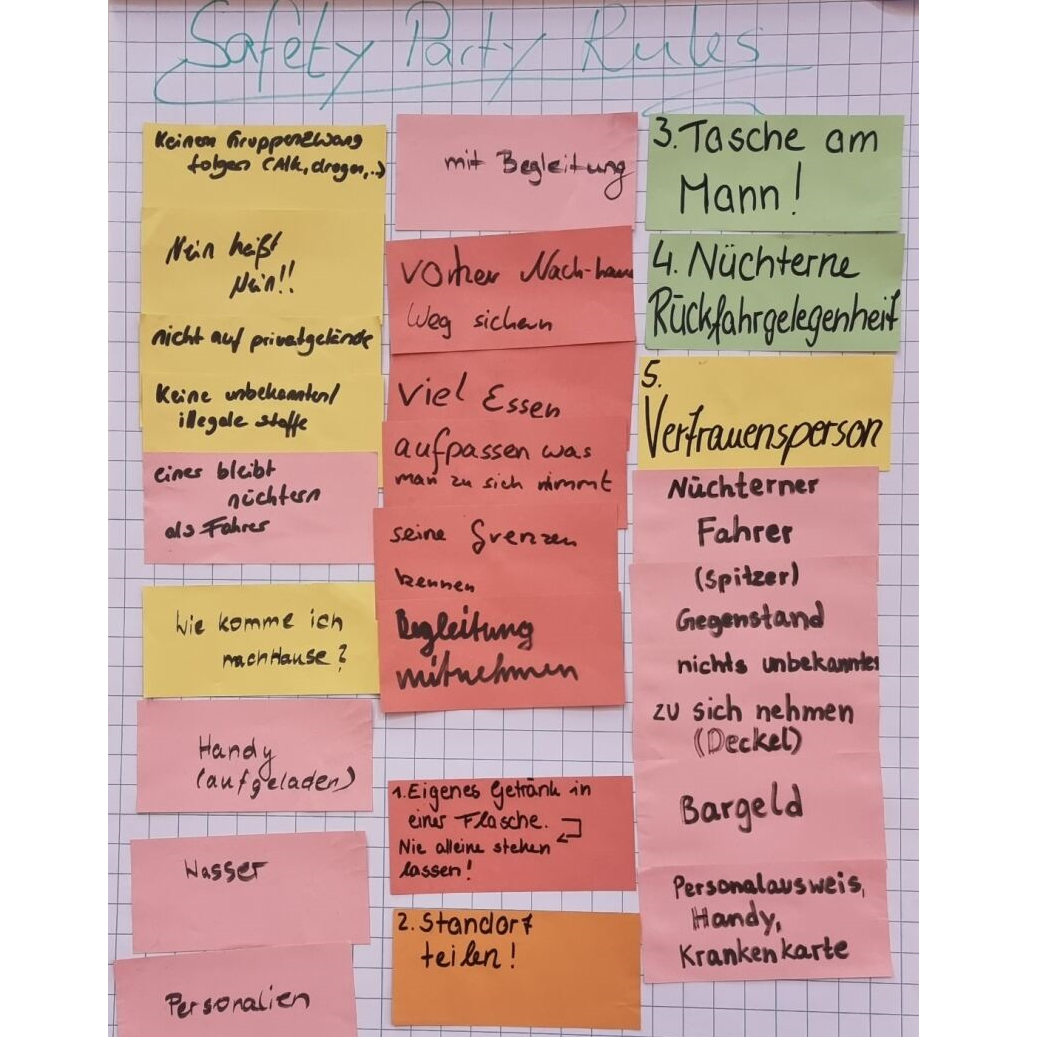 Safety Party Rules
Keinem Gruppenzwang
folgen (Alk, drogen,..)
Nein heißt
Nein!!
nicht auf privatgelände
Keine unbekannten/
illegale stoffe
einer bleibt
nüchtern
als Fahrer
Wie komme ich
nachHause?
Handy
(aufgeladen)
Wasser
Personalien
mit Begleitung
vorher Nach-hause
Weg sichern
viel Essen
aufpassen was
man zu sich nimmt
seine Grenzen
kennen
Begleitung
mitnehmen
1. Eigenes Getränk in
einer Flasche.
Nie alleine stehen
lassen!
2. Standort
teilen!
3. Tasche am
Mann!
4. Nüchterne
Rückfahrgelegenheit
5.
Vertrauensperson
Nüchterner
Fahrer
(Spitzer)
Gegenstand
nichts unbekanntes
zu sich nehmen
(Deckel)
Bargeld
Personalausweis,
Handy,
Krankenkarte